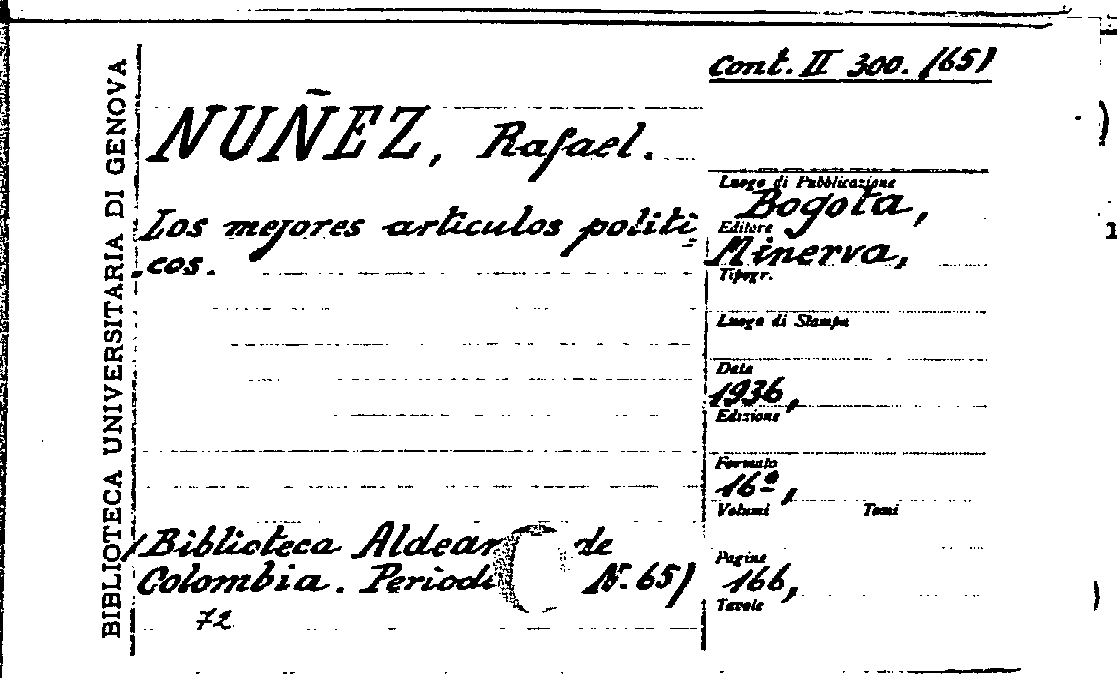 BIBLIOTECA UNIVERSITARIA DI GENOVA
Cont. II 300. (65)
NUÑEZ, Rafael.
Los mejores articulos politi=
cos.
(Biblioteca Aldean de
Colombia. Periodi N. 65)
72
Luogo di Pubblicazione
Bogota,
Editore
Minerva,
Tipogr.
Luogo di Stampa
Data
1936,
Edizione
Formato
16º,
Volumi Tomi
Pagine
166,
Tavole